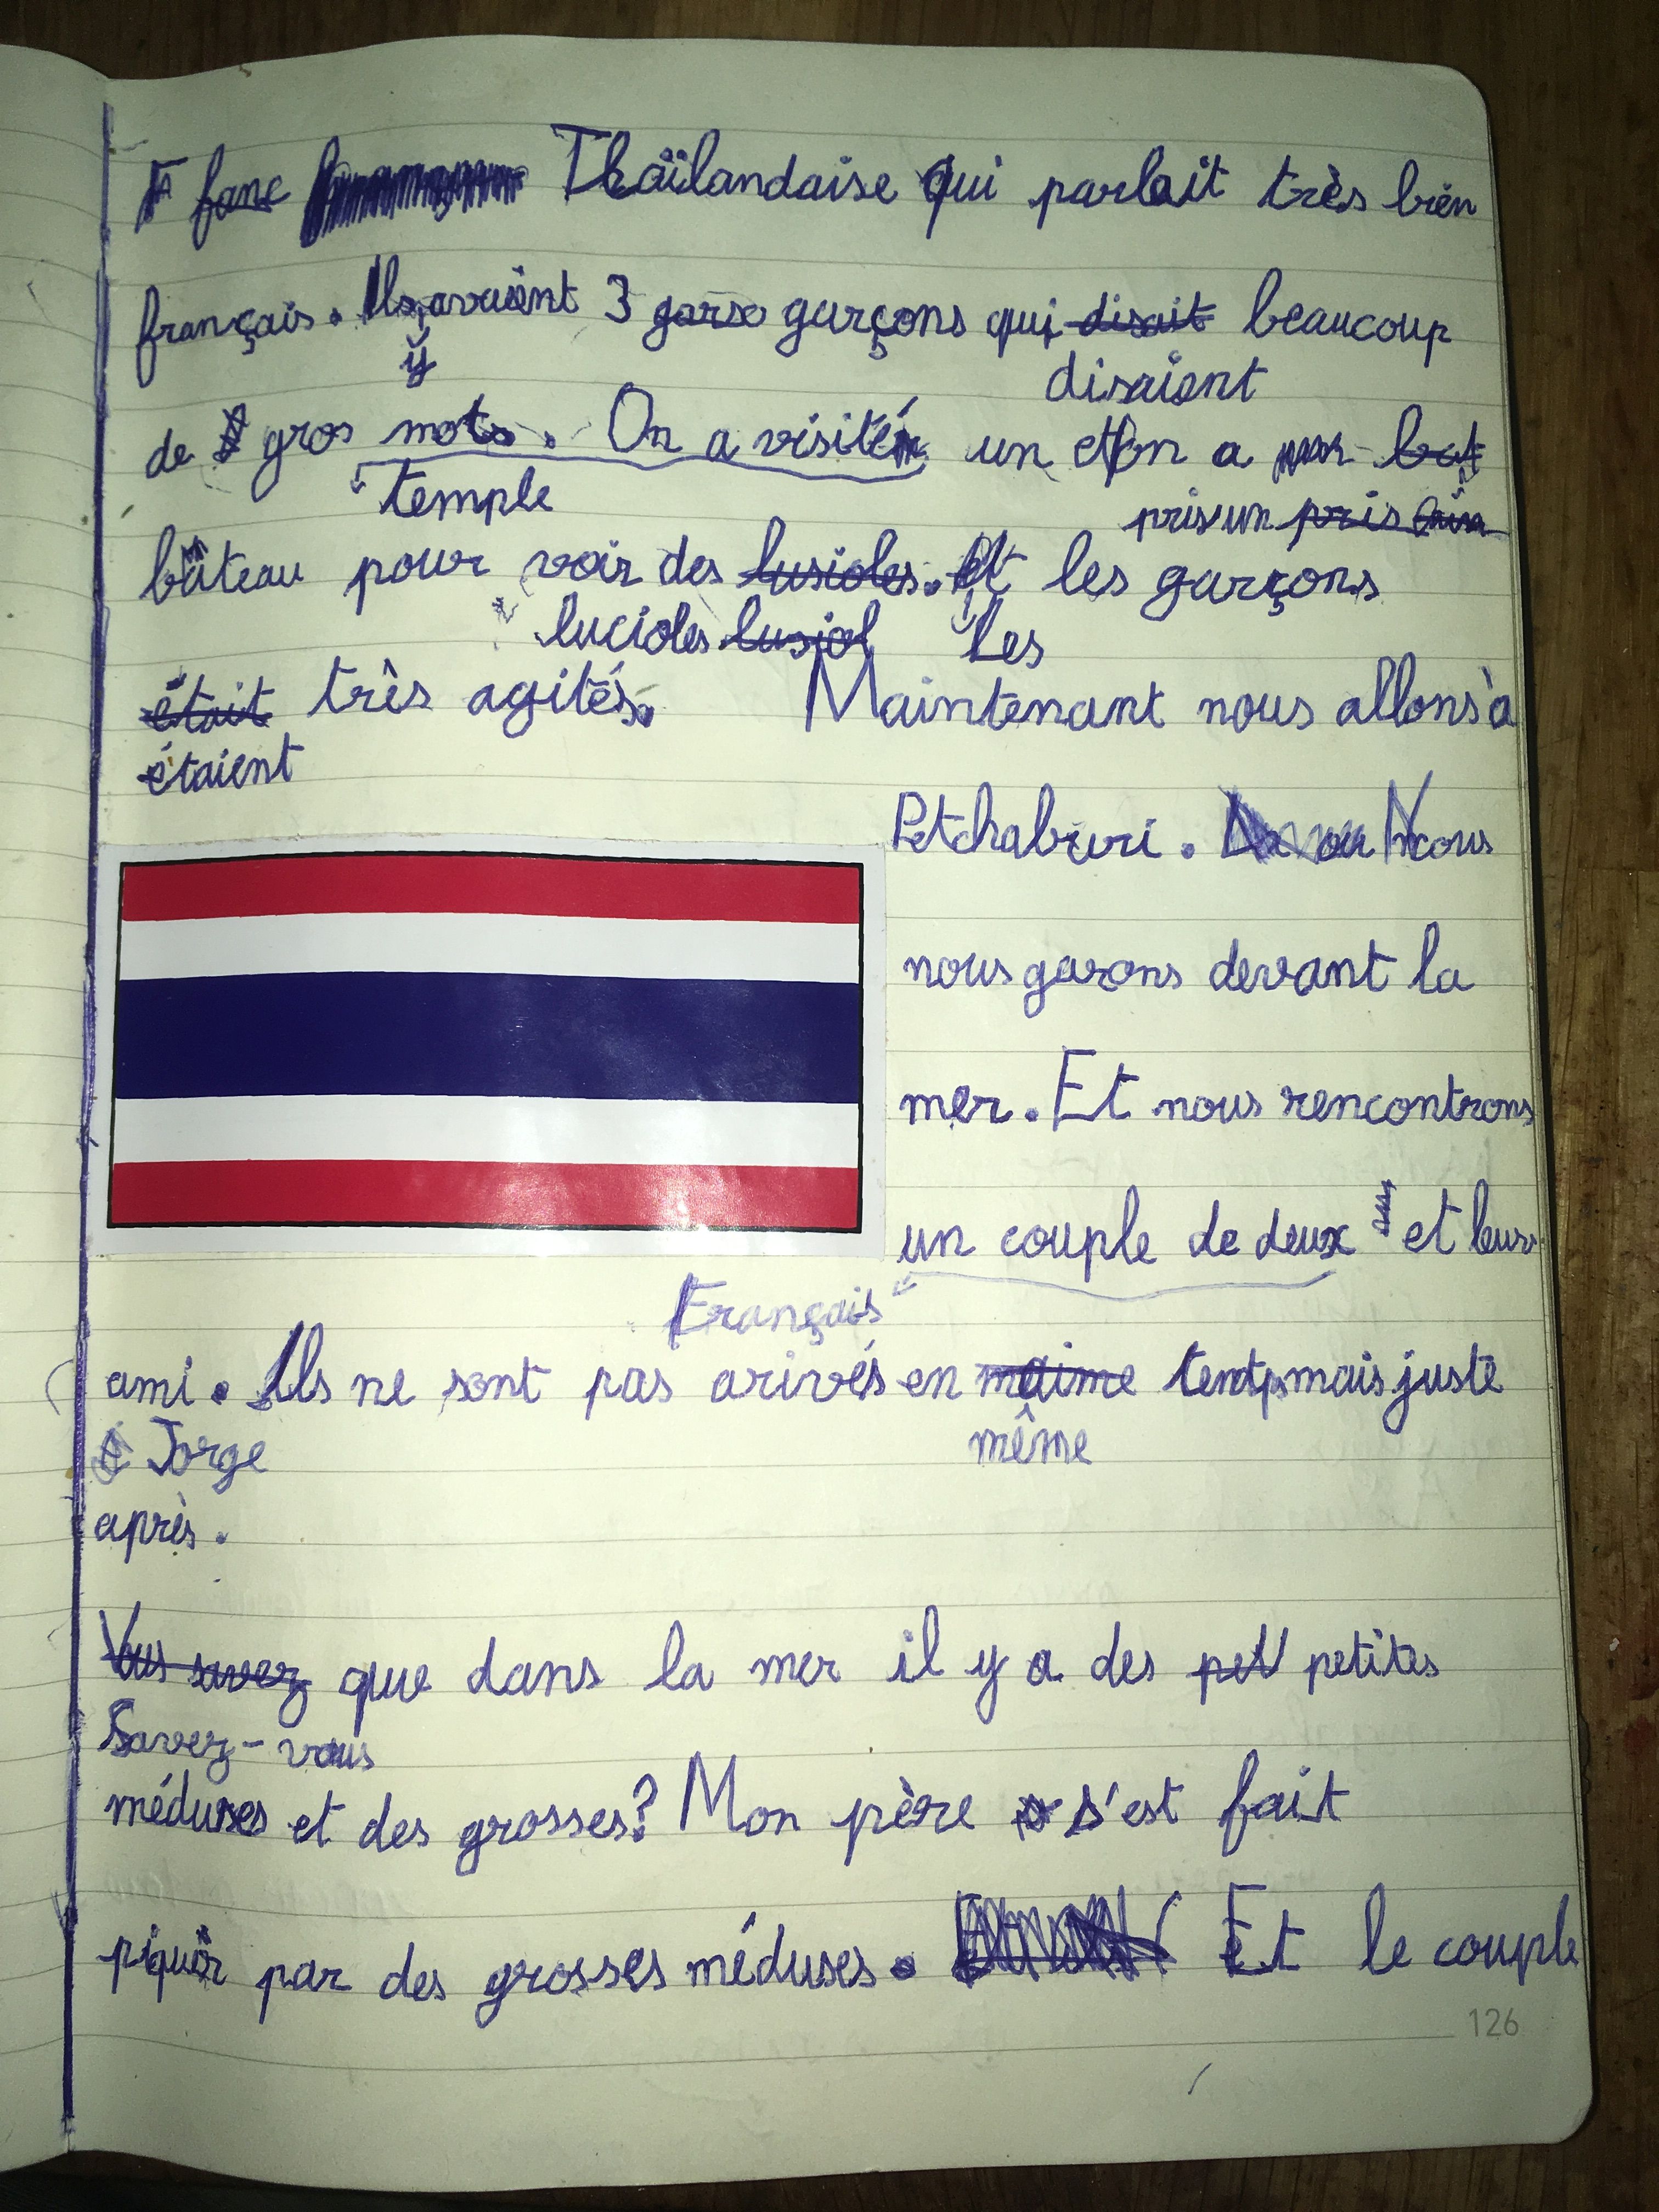 Thaïlandaise qui parlait très bien
français. Ils avaient 3 garso garçons qui disait beaucoup
y
disaient
de gros mots. On a visité un et on a
temple
pris un pris
bâteau pour voir des lusioles. Et les garçons
lucioles lusiol Les
était très agités. Maintenant nous allons à
étaient
Petchaburi. Nous
nous garons devant la
mer. Et nous rencontrons
un couple de deux et leur
Français
ami. Ils ne sont pas arivés en maime temps mais juste
Jorge
même
après.
Vous savez que dans la mer il y a des pet petites
Savez-vous
méduses et des grosses? Mon père s'est fait
piquer par des grosses méduses. Et le couple
126